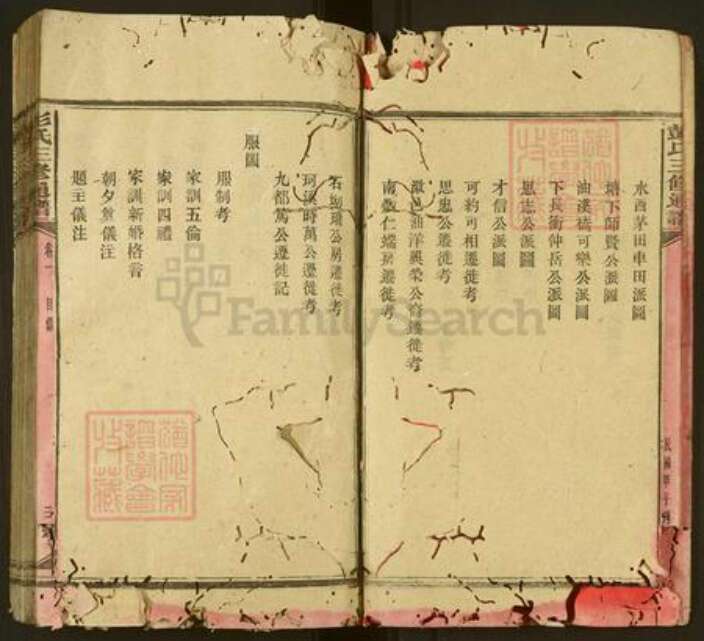 彭氏三修通譜
永西茅田車田派圖
塘下師賢公派圖
油溪橋可樂公派圖
下長衝仲岳公派圖
思志公派圖
才信公派圖
可約可相遷徙考
思忠公遷徙考
油洋興榮公裔遷徙考
南數仁端房遷徙考
公房遷徙考
珂溪時萬公遷徙考
九都篤公遷徙記
服圖
服制考
家訓五倫
家訓四禮
家訓新婚格言
朝夕奠儀注
題主儀注
氏三修通譜
卷一
目錄
FamilySearch